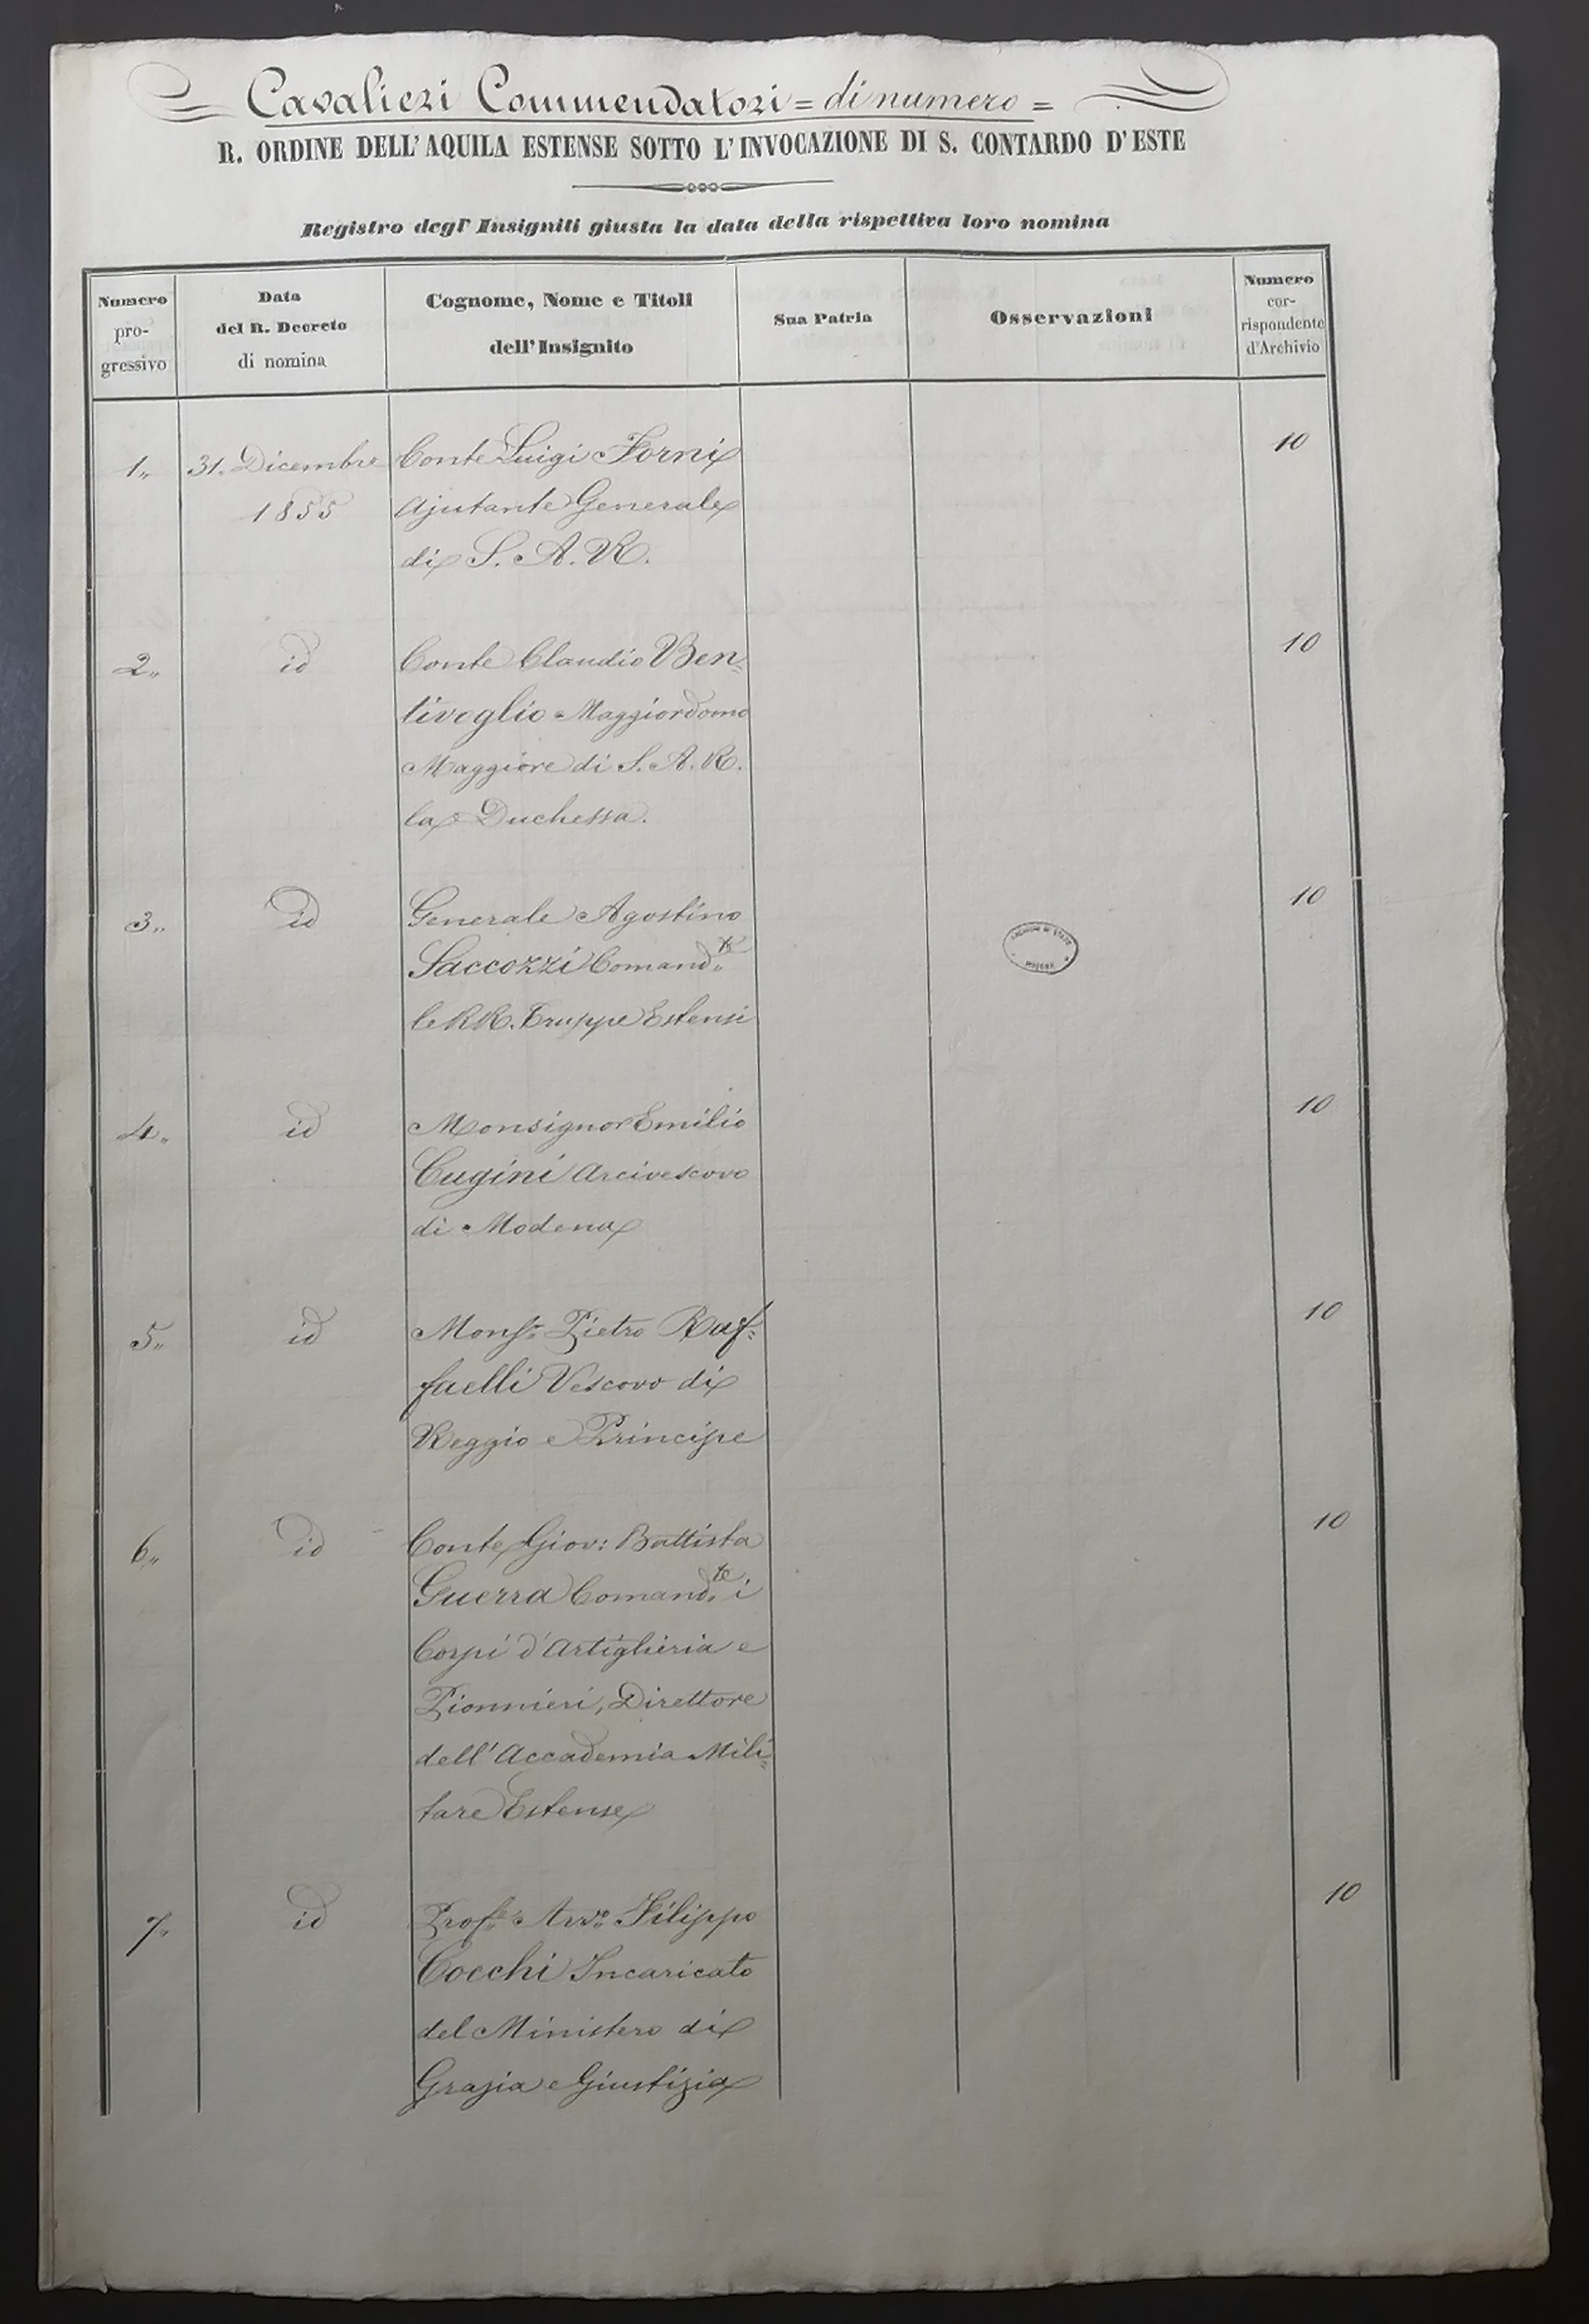 Cavalieri Commendatori = di numero =
R. ORDINE DELL' AQUILA ESTENSE SOTTO L' INVOCAZIONE DI S. CONTARDO D' ESTE
Registro degl' Insigniti giusta la data della rispettiva loro nomina
Numero
pro-
gressivo
Data
del R. Decreto
di nomina
Cognome, Nome e Titoli
dell' Insignito
Sua Patria
Osservazioni
Numero
cor-
rispondente
d'Archivio
1„ 31. Dicembre Conte Luigi Forni 10
1855 Ajutante Generale
di S. A. R.
2„ id Conte Claudio Ben=
tivoglio Maggiordomo
Maggiore di S. A. R.
la Duchessa.
10
3„ id Generale Agostino 10
Saccozzi Comand.te
le RR. Truppe Estensi
ARCHIVIO DI STATO
MODENA
4„ id Monsignor Emilio 10
Cugini Arcivescovo
di Modena
5„ id Monsr. Pietro Raf=
faelli Vescovo di
Reggio e Principe
10
6„ id Conte Giov: Battista 10
Guerra Comand.te i
Corpi d'Artiglieria e
Pionnieri, Direttore
dell' Accademia Mili=
tare Estense
7„ id Profe. Avvo. Filippo 10
Cocchi Incaricato
del Ministero di
Grazia e Giustizia